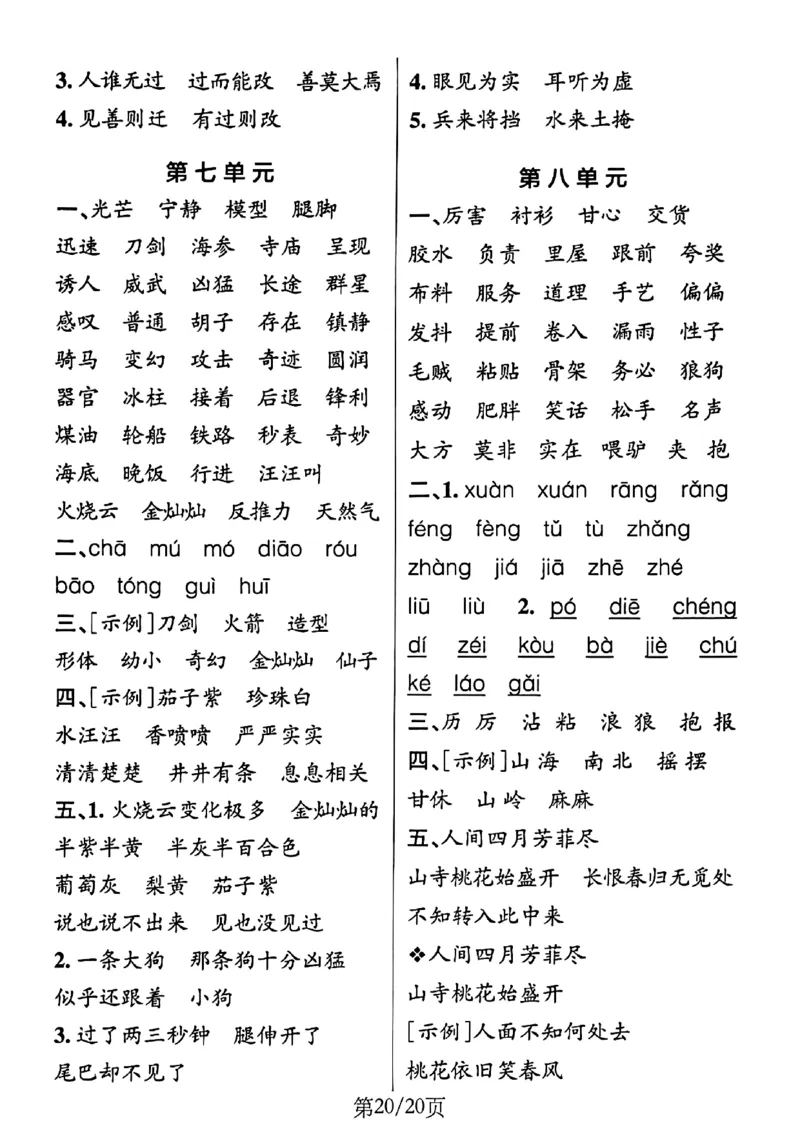 3.人谁无过 过而能改 善莫大焉
4.见善则迁 有过则改
第七单元
一、光芒 宁静 模型 腿脚
迅速 刀剑 海参 寺庙 呈现
诱人 威武 凶猛 长途 群星
感叹 普通 胡子 存在 镇静
骑马 变幻 攻击 奇迹 圆润
器官 冰柱 接着 后退 锋利
煤油 轮船 铁路 秒表 奇妙
海底 晚饭 行进 汪汪叫
火烧云 金灿灿 反推力 天然气
二、chā mú mó diāo róu
bāo tóng guì huī
三、[示例]刀剑 火箭 造型
形体 幼小 奇幻 金灿灿 仙子
四、[示例]茄子紫 珍珠白
水汪汪 香喷喷 严严实实
清清楚楚 井井有条 息息相关
五、1.火烧云变化极多 金灿灿的
半紫半黄 半灰半百合色
葡萄灰 梨黄 茄子紫
说也说不出来 见也没见过
2.一条大狗 那条狗十分凶猛
似乎还跟着 小狗
3.过了两三秒钟 腿伸开了
尾巴却不见了
4.眼见为实 耳听为虚
5.兵来将挡 水来土掩
第八单元
一、厉害 衬衫 甘心 交货
胶水 负责 里屋 跟前 夸奖
布料 服务 道理 手艺 偏偏
发抖 提前 卷入 漏雨 性子
毛贼 粘贴 骨架 务必 狼狗
感动 肥胖 笑话 松手 名声
大方 莫非 实在 喂驴 夹 抱
二、1.xuàn xuán rāng rǎng
féng fèng tǔ tù zhǎng
zhàng jiá jiā zhē zhé
liū liù 2. pó diē chéng
dí zéi kòu bà jiè chú
ké láo gǎi
三、历 厉 沾 粘 浪 狼 抱 报
四、[示例]山 海 南 北 摇 摆
甘休 山 岭 麻麻
五、人间四月芳菲尽
山寺桃花始盛开 长恨春归无觅处
不知转入此中来
❖人间四月芳菲尽
山寺桃花始盛开
[示例]人面不知何处去
桃花依旧笑春风
第20/20页